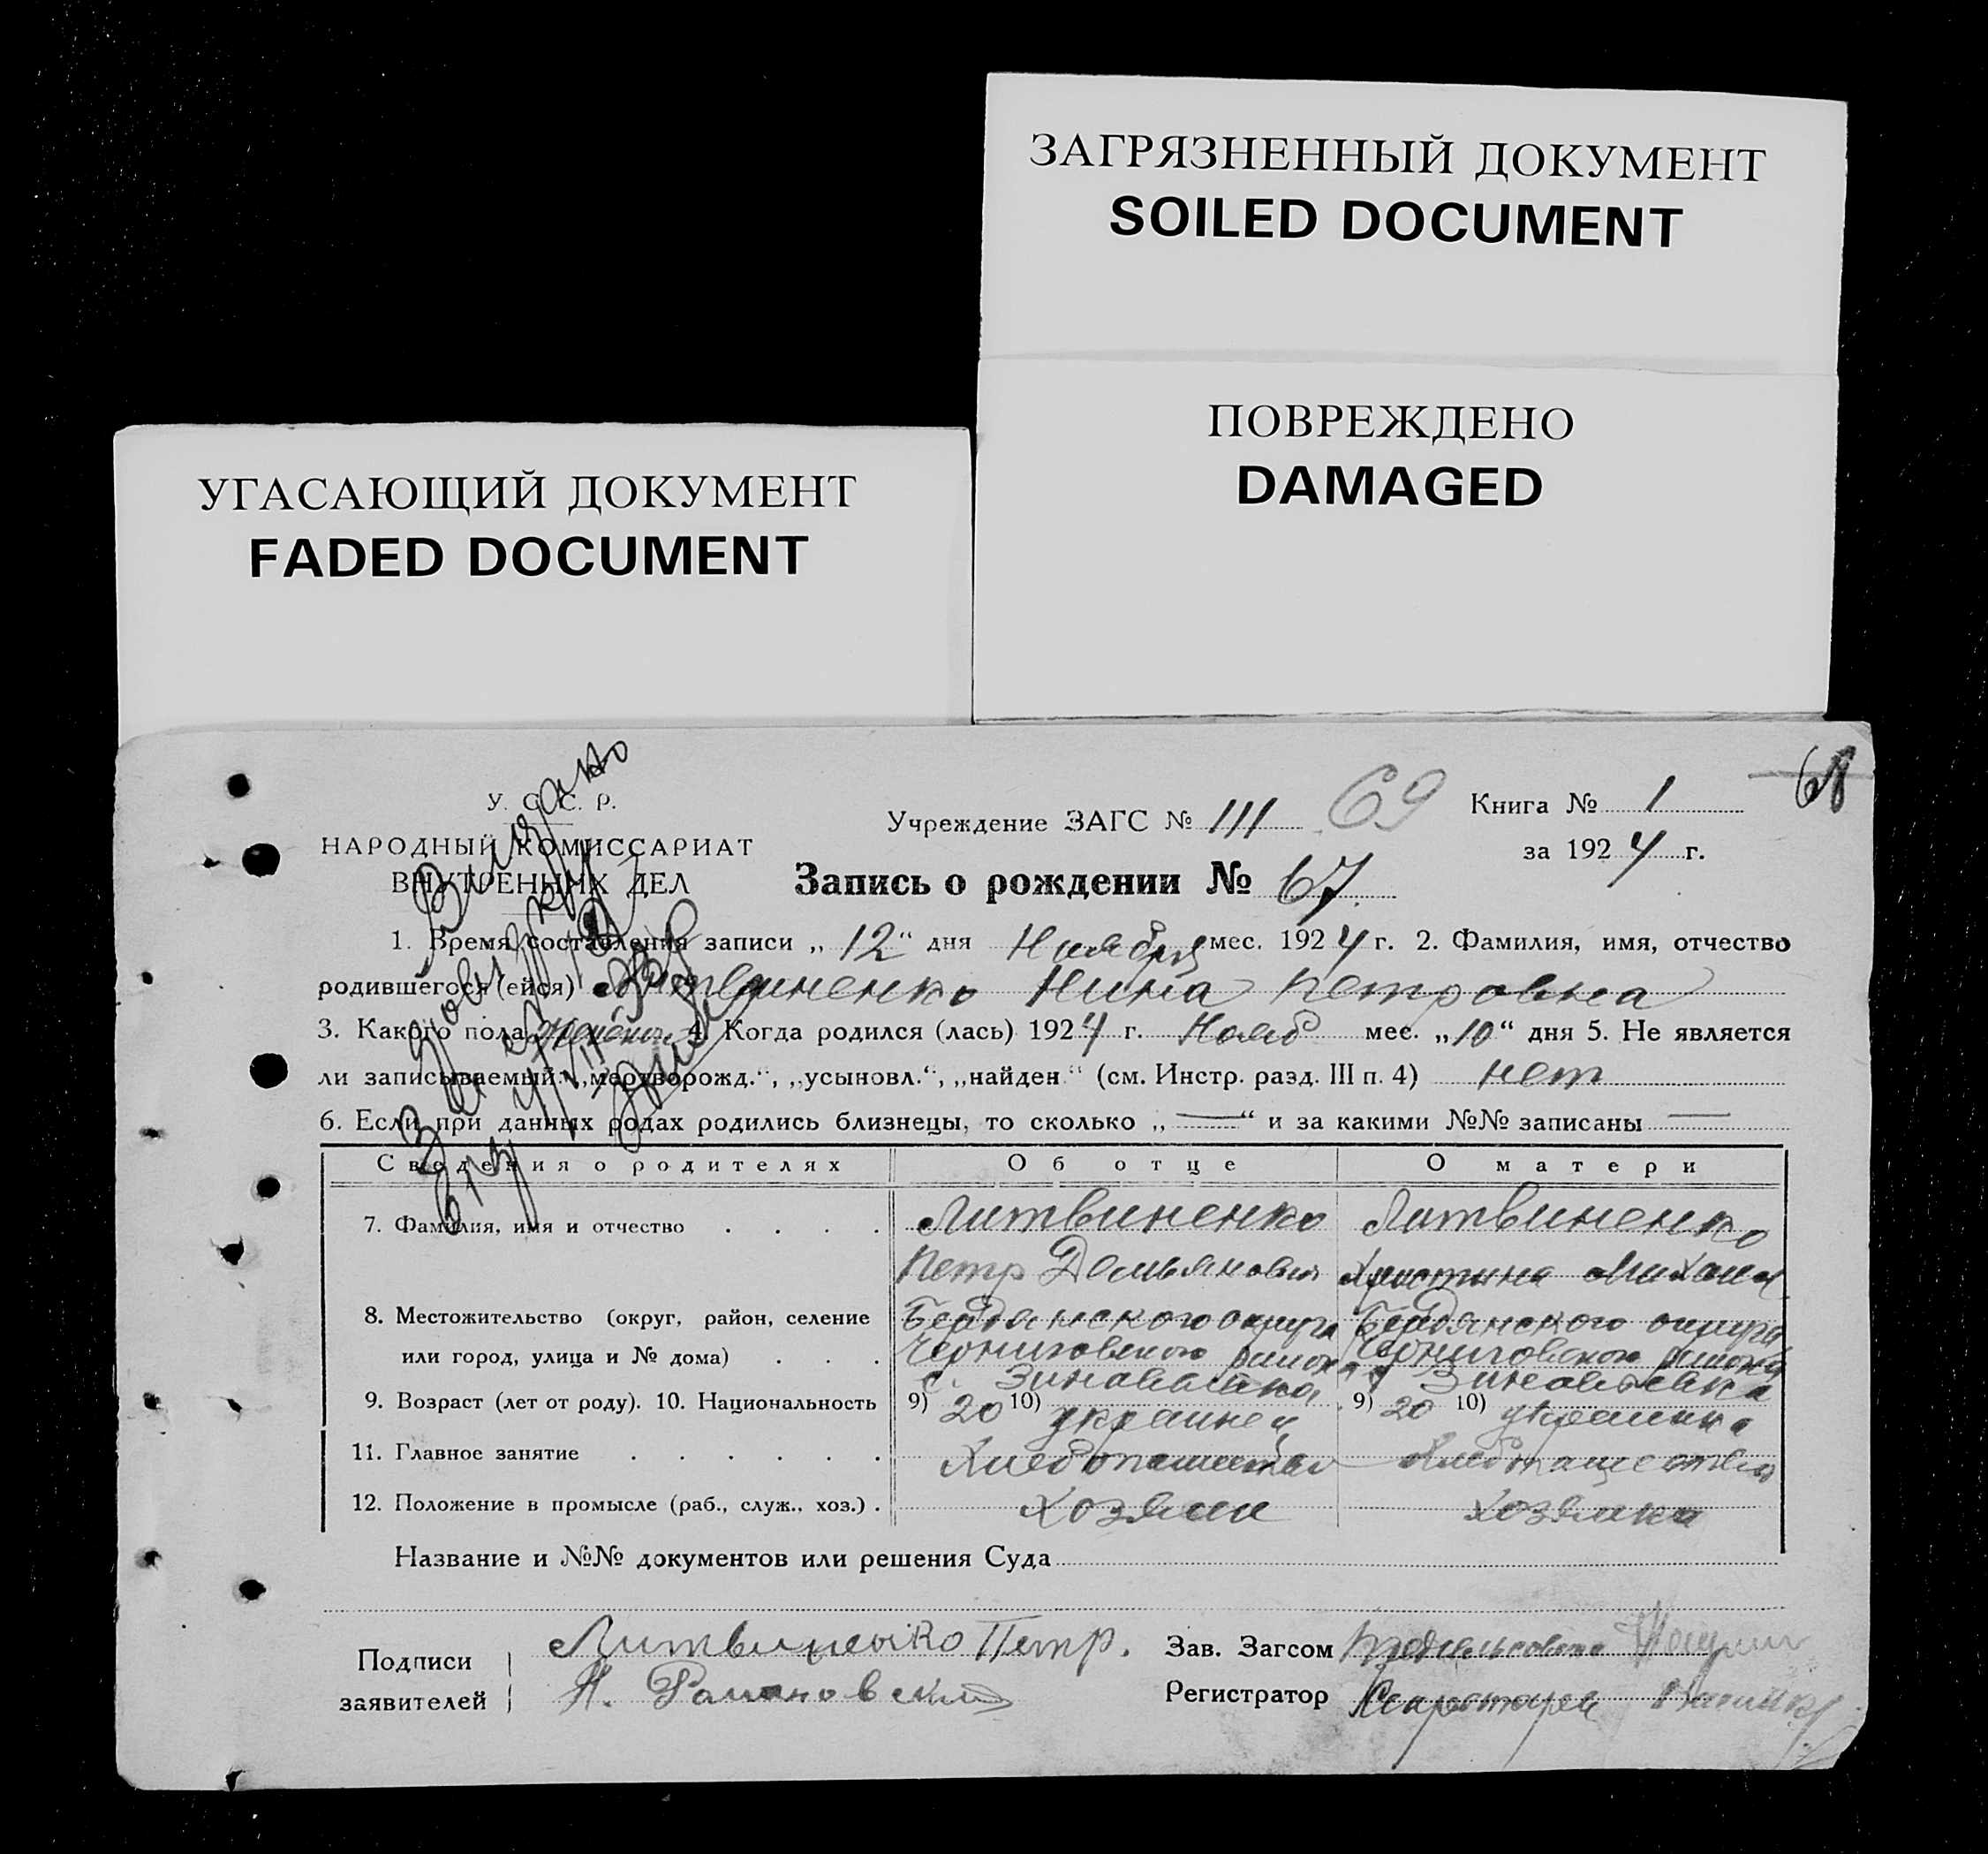 ЗАГРЯЗНЕННЫЙ ДОКУМЕНТ
SOILED DOCUMENT
ПОВРЕЖДЕНО
DAMAGED
УГАСАЮЩИЙ ДОКУМЕНТ
FADED DOCUMENT
68
У. С. С. Р.
НАРОДНЫЙ КОМИССАРИАТ
ВНУТРЕННИХ ДЕЛ
Видано
Учреждение ЗАГС № 111 69
Книга № 1
за 1924 г.
Запись о рождении № 67
1. Время составления записи „12“ дня Ноября мес. 1924 г. 2. Фамилия, имя, отчество
родившегося (ейся) Литвиненко Нина Петровна
3. Какого пола 4. Когда родился (лась) 1924 г. Нояб мес. „10“ дня 5. Не является
ли записываемый: „мертворожд.“, „усыновл.“, „найден“ (см. Инстр. разд. III п. 4) нет
6. Если при данных родах родились близнецы, то сколько „—“ и за какими №№ записаны —
Сведения о родителях Об отце О матери
7. Фамилия, имя и отчество . . . . Литвиненко Литвиненко
Петр Демьянович Христина Михаил
8. Местожительство (округ, район, селение Бердянского округа Бердянского округа
или город, улица и № дома) . . . Черниговского района Черниговского района
с. Зиновьевка
9. Возраст (лет от роду). 10. Национальность 9) 20 10) украинец 9) 20 10) украинка
11. Главное занятие . . . . . . Хлебопашество Хлебопашество
12. Положение в промысле (раб., служ., хоз.) . хозяин хозяйка
Название и №№ документов или решения Суда
Подписи
заявителей
Литвиненко Петр.
Зав. Загсом
Регистратор Секретарь